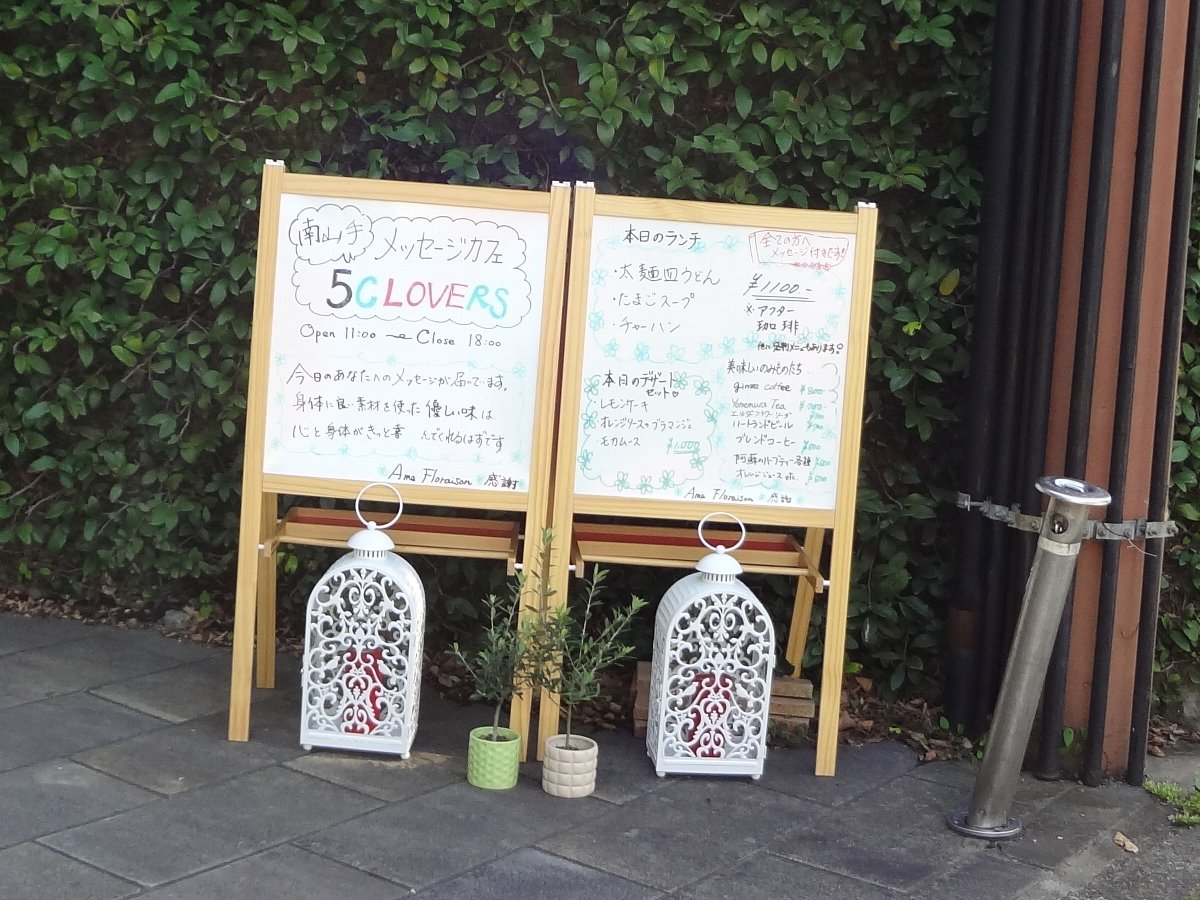 南山手
メッセージカフェ
5CLOVERS
Open 11:00 〜 Close 18:00
今日のあなたへのメッセージが届いています。
身体に良い素材を使った優しい味は
心と身体がきっと喜 んでくれるはずです
Ame Floraison 感謝
本日のランチ
・太麺皿うどん
・たまごスープ
・チャーハン
全ての方へ
メッセージ付きです!
¥1100.-
※アフター
珈琲
他に メニューもあります
本日のデザート
セット
・レモンケーキ
・オレンジソースのブラマンジェ
・モカムース
¥1,000
美味しいのみものたち
coffee
Tea
エルダーフラワーソーダ
ハートランドビール
ブレンドコーヒー
阿蘇のハーブティー各種
オレンジジュース etc.
Ame Floraison 感謝